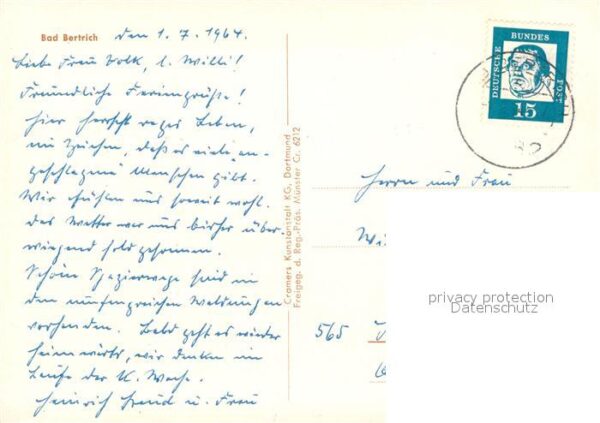 Bad Bertrich den 1. 7. 1964.
Liebe Frau Volk, l. Willi!
Freundliche Feriengrüße!
Hier herrscht reges Leben,
ein Zeichen, daß es viele an-
geschlagene Menschen gibt.
Wir fühlen uns soweit wohl.
Das Wetter war uns bisher über-
wiegend hold gesonnen.
Schöne Spazierwege sind in
den umfangreichen Waldungen
vorhanden. Bald geht es wieder
heimwärts, wir denken im
Laufe der K. Woche.
Heinrich Freud u. Frau
Cramers Kunstanstalt KG, Dortmund
Freigeg. d. Reg.-Präs. Münster Cr. 6212
DEUTSCHE BUNDES POST
15
Herrn und Frau
Wi
565
privacy protection
Datenschutz